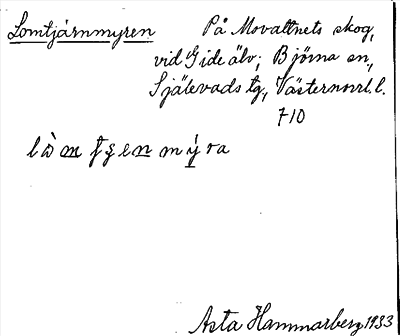 Lomtjärnmyren På Movattnets skog,
vid Gide älv; Björna sn,
Själevads tg, Västernorrl. l.
F10
Asta Hammarberg 1933